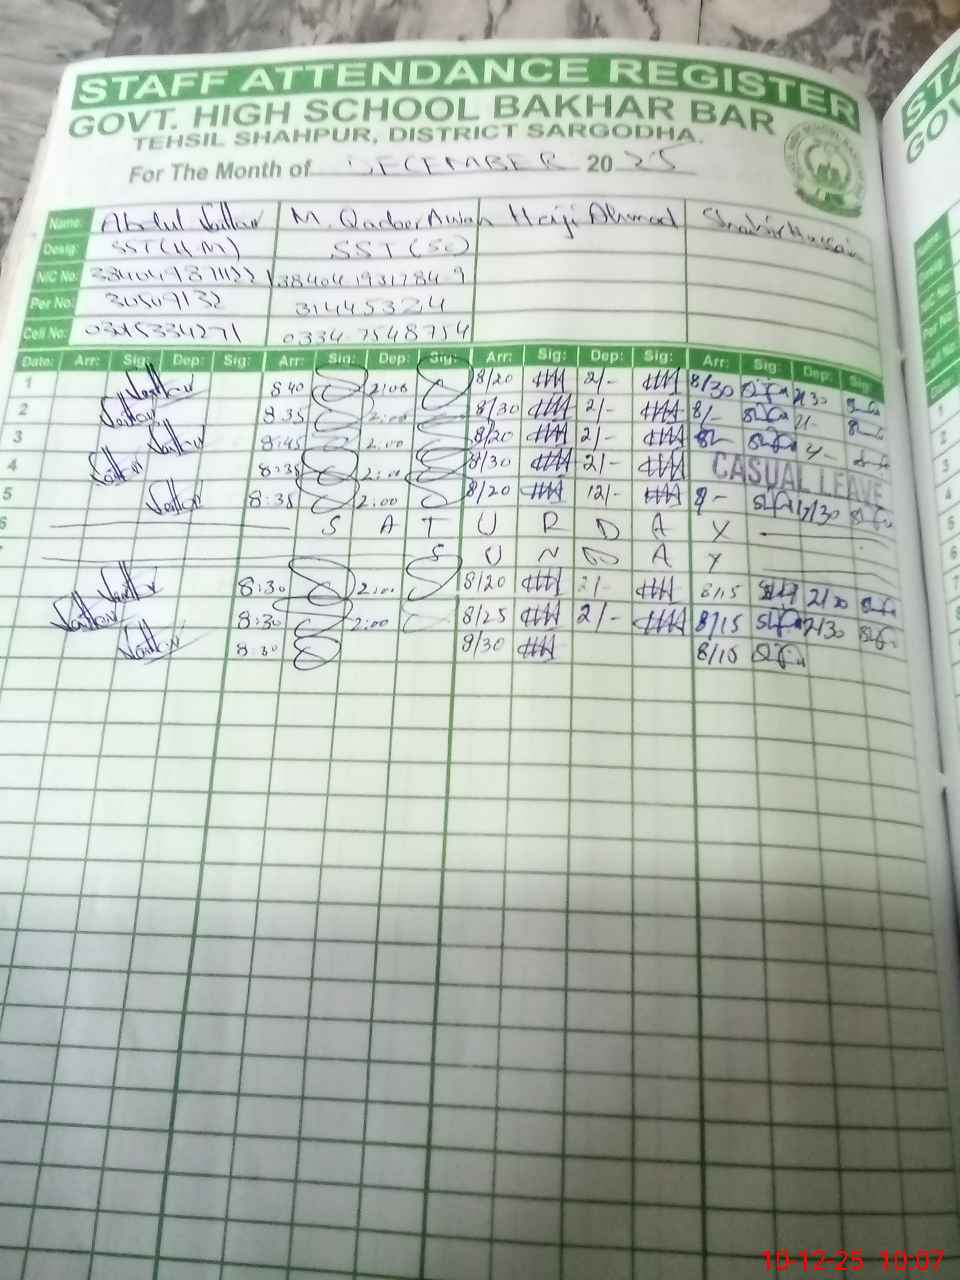 STAFF ATTENDANCE REGISTER
GOVT. HIGH SCHOOL BAKHAR BAR
TEHSIL SHAHPUR, DISTRICT SARGODHA.
For The Month of DECEMBER 2025
Name: Abdul Sattar M. Qadeer Awan Haji Ahmad Shabir Hussain
Desig: SST(H.M) SST(Sc)
NIC No:
Per No: 31445324
Cell No: 0334 7548754
Date: Arr: Sig: Dep: Sig: Arr: Sig: Dep: Sig: Arr: Sig: Dep: Sig: Arr: Sig: Dep: Sig:
1 Sattar 8 40 2:00 8/20 2/- 8/30 2/30
2 Sattar 8:35 2:00 8/30 2/- 8/- 2/-
3 Sattar 8:45 2:00 8/20 2/-
4 Sattar 8:35 2:00 8/30 2/- CASUAL LEAVE
5 Sattar 8:35 2:00 8/20 12/-
6 S A T U R D A Y
S U N D A Y
Sattar 8:30 2:00 8/20 2/- 8/15 2/30
Sattar 8:30 2:00 8/25 2/- 8/15 2/30
Sattar 8:30 8/30 8/15
10-12-25 10:07